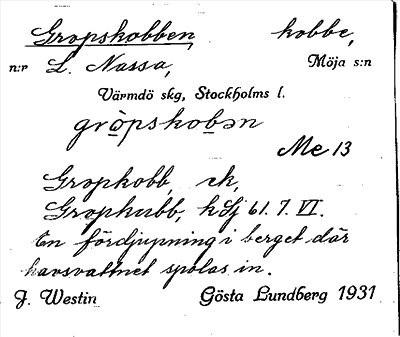 Gropskobben, kobbe,
n:r L. Nassa, Möja s:n
Värmdö skg, Stockholms l.
gròpskobən
Me 13
Gropkobb, ek,
Gropkubb, hSj 61.7.VI.
En fördjupning i berget där
havsvattnet spolas in.
J. Westin Gösta Lundberg 1931